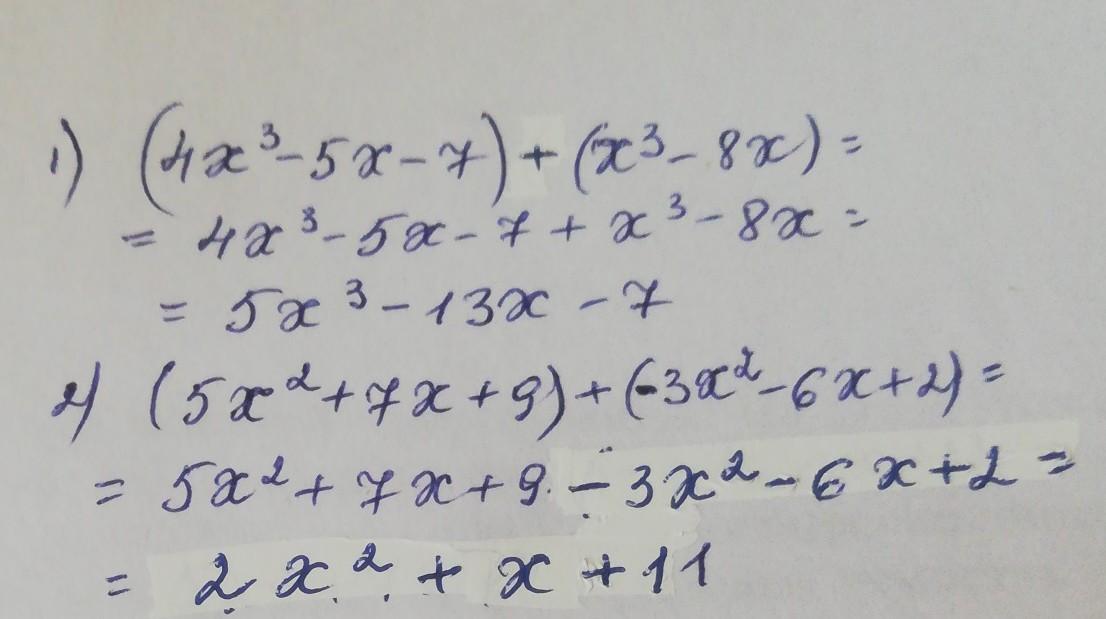 1) (4x³-5x-7)+(x³-8x)=
= 4x³-5x-7+x³-8x=
= 5x³-13x-7
2) (5x²+7x+9)+(-3x²-6x+2)=
= 5x²+7x+9-3x²-6x+2=
= 2x²+x+11